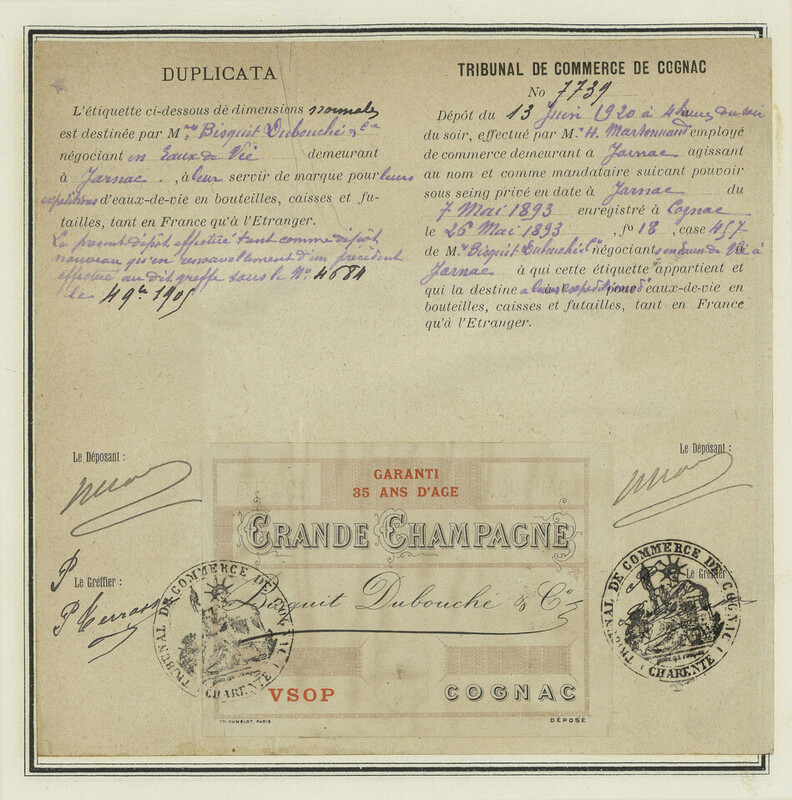 DUPLICATA
L'étiquette ci-dessous de dimensions normales
est destinée par M.rs Bisquit Dubouché & Cie
négociant en Eaux de Vie demeurant
à Jarnac, à leur servir de marque pour leurs
expéditions d'eaux-de-vie en bouteilles, caisses et fu-
tailles, tant en France qu'à l'Etranger.
Le présent dépôt effectué tant comme dépôt
nouveau qu'en renouvellement d'un précédent
effectué au dit greffe sous le No 4684
le 4 9bre 1905
TRIBUNAL DE COMMERCE DE COGNAC
No 7739
Dépôt du 13 Juin 1920 à 4 heures du soir
du soir, effectué par M. H. employé
de commerce demeurant à Jarnac agissant
au nom et comme mandataire suivant pouvoir
sous seing privé en date à Jarnac du
7 Mai 1893 enregistré à Cognac
le 26 Mai 1893, fo 18, case 457
de M.rs Bisquit Dubouché & Cie négociants en Eaux de Vie à
Jarnac à qui cette étiquette appartient et
qui la destine à leurs expéditions d'eaux-de-vie en
bouteilles, caisses et futailles, tant en France
qu'à l'Etranger.
Le Déposant :
Le Déposant :
Le Greffier :
Le Greffier
GARANTI
35 ANS D'AGE
GRANDE CHAMPAGNE
Bisquit Dubouché & Co
VSOP
COGNAC
HUMBLOT, PARIS
DÉPOSÉ
TRIBUNAL DE COMMERCE DE COGNAC
(CHARENTE)
TRIBUNAL DE COMMERCE DE COGNAC
(CHARENTE)